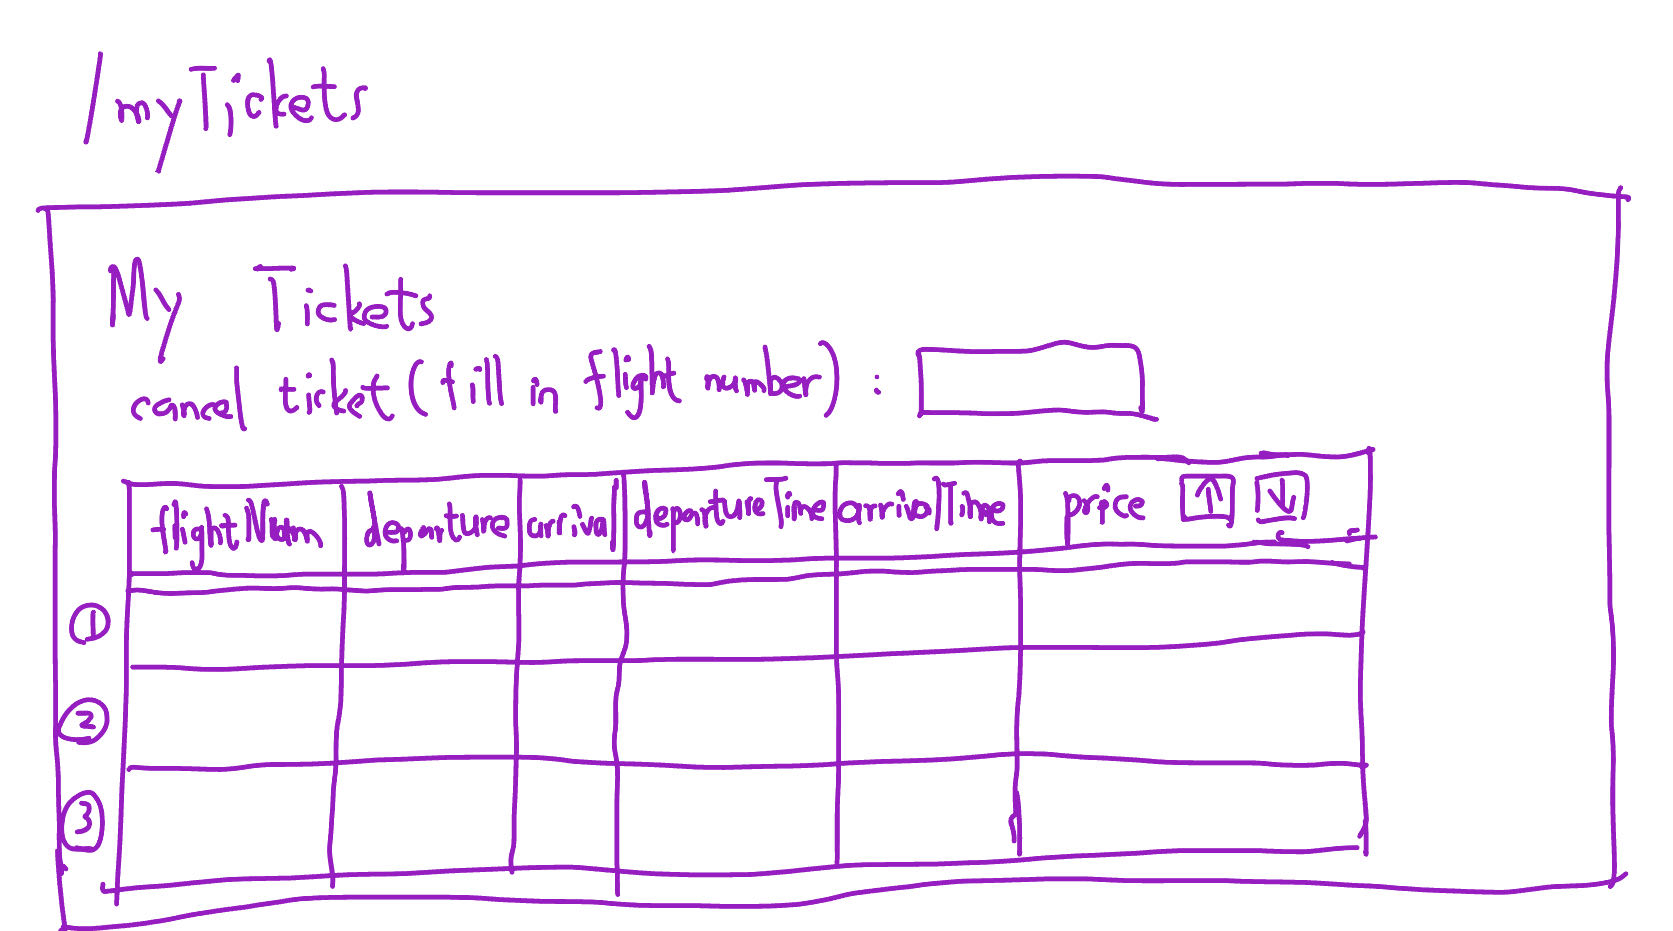 /myTickets
My Tickets
cancel ticket (fill in flight number) :
flightNum departure arrival departureTime arrivalTime price ↑ ↓
1
2
3